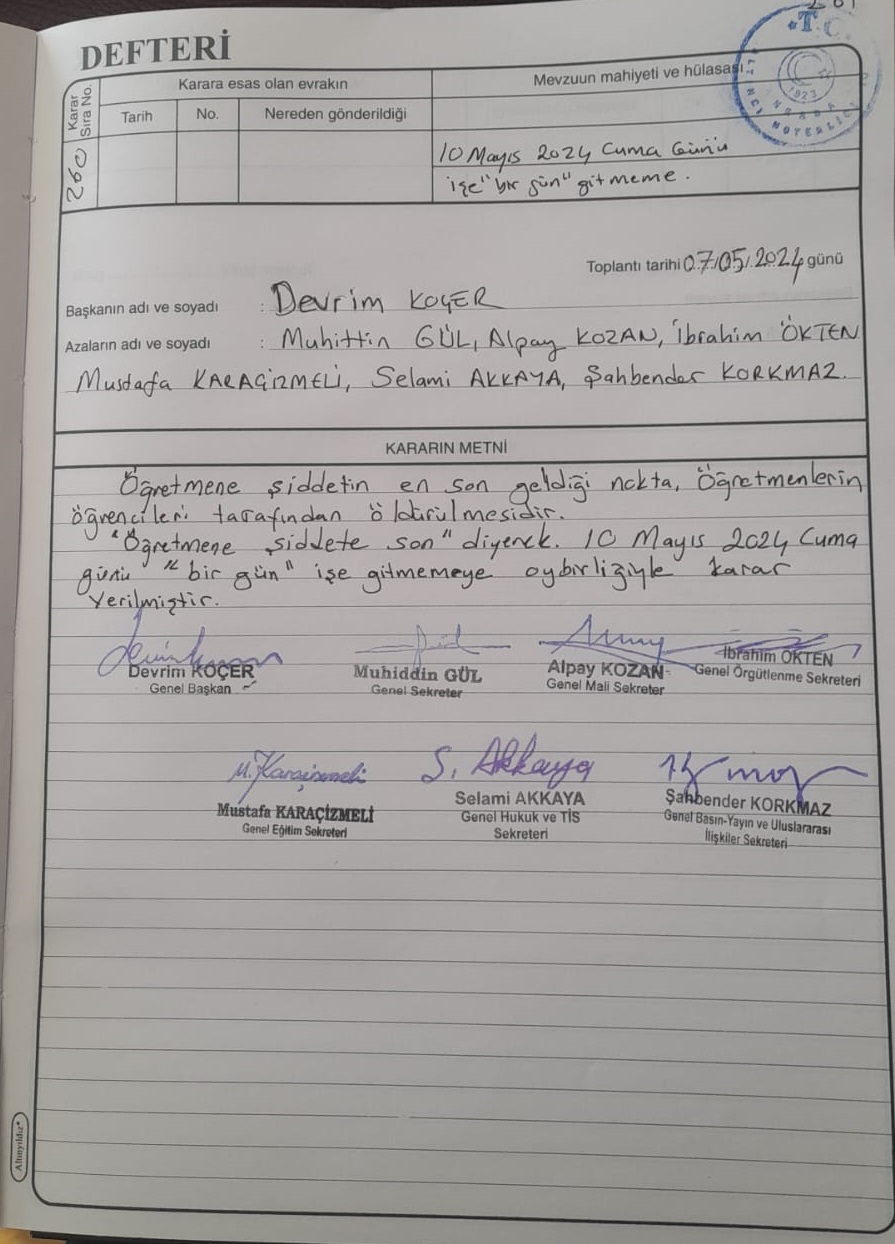 DEFTERİ
Karar Sıra No.
Karara esas olan evrakın
Mevzuun mahiyeti ve hülasası
Tarih
No.
Nereden gönderildiği
260
10 Mayıs 2024 Cuma Günü
işe "bir gün" gitmeme.
T.C.
1923
Toplantı tarihi 07/05/2024 günü
Başkanın adı ve soyadı : Devrim KOÇER
Azaların adı ve soyadı : Muhittin GÜL, Alpay KOZAN, İbrahim ÖKTEN
Mustafa KARAÇİZMELİ, Selami AKKAYA, Şahbender KORKMAZ.
KARARIN METNİ
Öğretmene şiddetin en son geldiği nokta, Öğretmenlerin
öğrencileri tarafından öldürülmesidir.
"Öğretmene şiddete son" diyerek. 10 Mayıs 2024 Cuma
günü "bir gün" işe gitmemeye oybirliğiyle karar
verilmiştir.
Devrim KOÇER
Genel Başkan
Muhiddin GÜL
Genel Sekreter
Alpay KOZAN
Genel Mali Sekreter
İbrahim ÖKTEN
Genel Örgütlenme Sekreteri
M. Karaçizmeli
Mustafa KARAÇİZMELİ
Genel Eğitim Sekreteri
S. Akkaya
Selami AKKAYA
Genel Hukuk ve TİS
Sekreteri
Şahbender KORKMAZ
Genel Basın-Yayın ve Uluslararası
İlişkiler Sekreteri
Altınyıldız